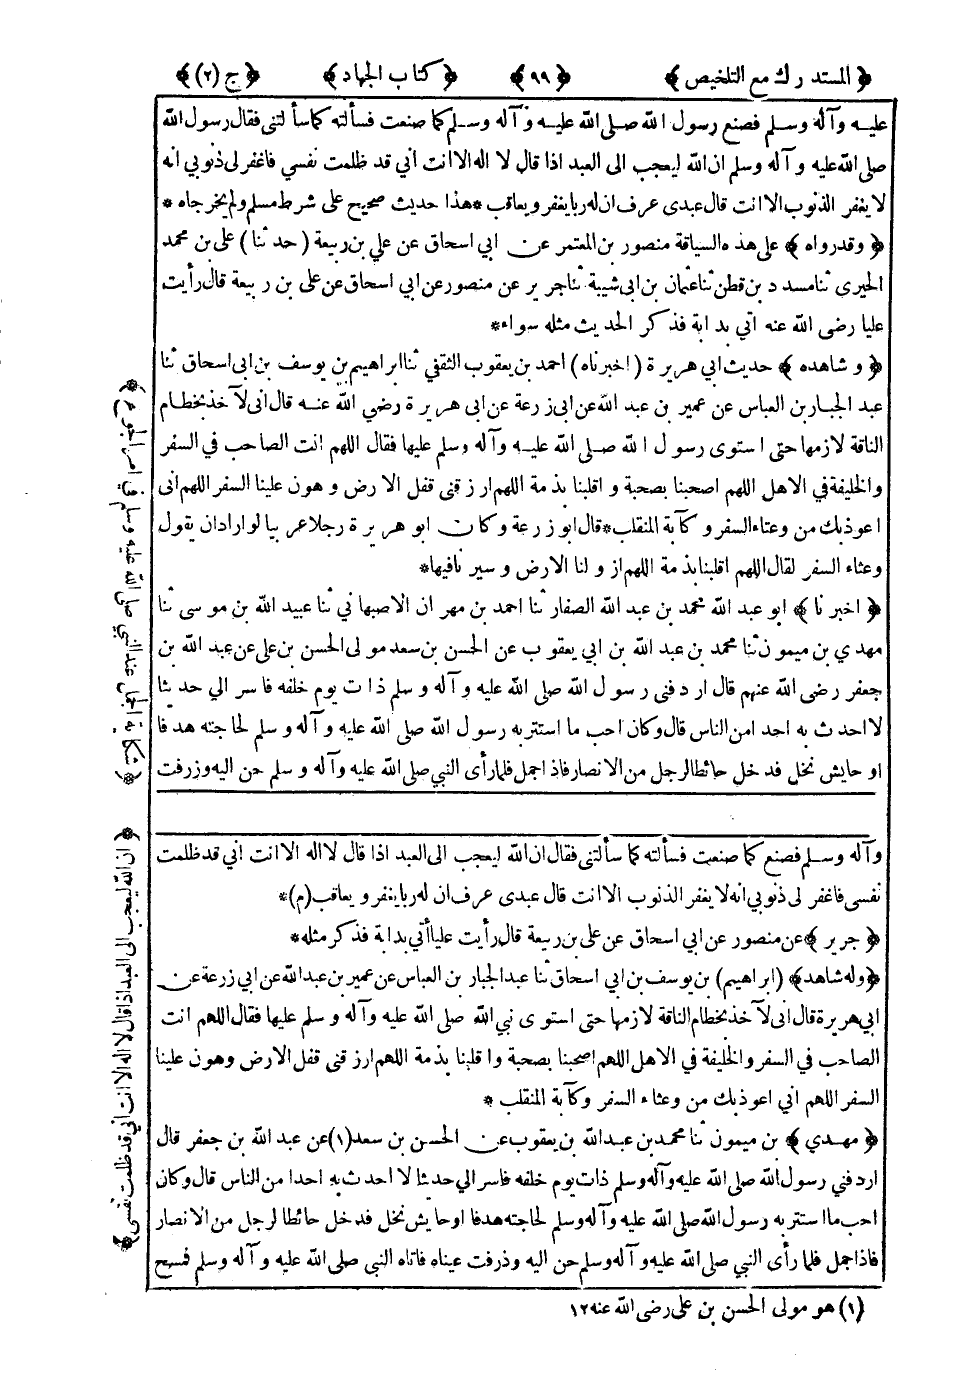 ﴿ المستدرك مع التلخيص ﴾ ﴿ ٩٩ ﴾ ﴿ كتاب الجهاد ﴾ ﴿ ج (٢) ﴾
عليه وآله وسلم فصنع رسول الله صلى الله عليه وآله وسلم كما صنعت فسألته كما سألتنى فقال رسول الله
صلى الله عليه وآله وسلم ان الله ليعجب الى العبد اذا قال لا اله الا انت أني قد ظلمت نفسي فاغفر لى ذنوبي انه
لا يغفر الذنوب الا انت قال عبدى عرف ان له ربا يغفر ويعاقب * هذا حديث صحيح على شرط مسلم ولم يخرجاه *
﴿ وقد رواه ﴾ على هذه السياقة منصور بن المعتمر عن ابي اسحاق عن علي بن ربيعة ( حدثنا ) على بن محمد
الحيرى ثنا مسدد بن قطن ثنا عثمان بن ابى شيبة ثنا جرير عن منصور عن ابي اسحاق عن على بن ربيعة قال رأيت
عليا رضى الله عنه اتي بدابة فذكر الحديث مثله سواء *
﴿ و شاهده ﴾ حديث ابي هريرة ( اخبرناه ) احمد بن يعقوب الثقفي ثنا ابراهيم بن يوسف بن ابى اسحاق ثنا
عبد الجبار بن العباس عن عمير بن عبد الله عن ابى زرعة عن ابى هريرة رضي الله عنه قال انى لآخذ بخطام
الناقة لازمها حتى استوى رسول الله صلى الله عليه وآله وسلم عليها فقال اللهم انت الصاحب في السفر
والخليفة في الاهل اللهم اصحبنا بصحبة و اقلبنا بذمة اللهم ارزقنى قفل الارض و هون علينا السفر اللهم انى
اعوذ بك من وعثاء السفر و كآبة المنقلب * قال ابو زرعة وكان ابو هريرة رجلا عربيا لو اراد ان يقول
وعثاء السفر لقال اللهم اقلبنا بذمة اللهم ازو لنا الارض و سيرنا فيها *
﴿ اخبرنا ﴾ ابو عبد الله محمد بن عبد الله الصفار ثنا احمد بن مهران الاصبهاني ثنا عبيد الله بن موسى ثنا
مهدي بن ميمون ثنا محمد بن عبد الله بن ابي يعقوب عن الحسن بن سعد مولى الحسن بن على عن عبد الله بن
جعفر رضى الله عنهم قال اردفنى رسول الله صلى الله عليه وآله وسلم ذات يوم خلفه فاسر الي حديثا
لا احدث به احدا من الناس قال وكان احب ما استتر به رسول الله صلى الله عليه وآله وسلم لحاجته هدفا
او حايش نخل فدخل حائطا لرجل من الانصار فاذا جمل فلما رأى النبي صلى الله عليه وآله وسلم حن اليه وزرفت
﴿ شكاية الجمل عند النبي صلى الله عليه وسلم في امر الجوع ﴾
وآله وسلم فصنع كما صنعت فسألته كما سألتنى فقال ان الله ليعجب الى العبد اذا قال لا اله الا انت اني قد ظلمت
نفسى فاغفر لى ذنوبي انه لا يغفر الذنوب الا انت قال عبدى عرف ان له ربا يغفر و يعاقب (م) *
﴿ جرير ﴾ عن منصور عن ابي اسحاق عن على بن ربيعة قال رأيت عليا أتي بدابة فذكر مثله *
﴿ وله شاهد ﴾ ( ابراهيم ) بن يوسف بن ابي اسحاق ثنا عبد الجبار بن العباس عن عمير بن عبد الله عن ابي زرعة عن
ابي هريرة قال انى لآخذ بخطام الناقة لازمها حتى استوى نبي الله صلى الله عليه وآله وسلم عليها فقال اللهم انت
الصاحب في السفر والخليفة في الاهل اللهم اصحبنا بصحبة واقلبنا بذمة اللهم ارزقنى قفل الارض وهون علينا
السفر اللهم اني اعوذ بك من وعثاء السفر وكآبة المنقلب *
﴿ مهدي ﴾ بن ميمون ثنا محمد بن عبد الله بن يعقوب عن الحسن بن سعد (١) عن عبد الله بن جعفر قال
اردفني رسول الله صلى الله عليه وآله وسلم ذات يوم خلفه فاسر الي حديثا لا احدث به احدا من الناس قال وكان
احب ما استتر به رسول الله صلى الله عليه وآله وسلم لحاجته هدفا او حايش نخل فدخل حائطا لرجل من الانصار
فاذا جمل فلما رأى النبي صلى الله عليه وآله وسلم حن اليه وذرفت عيناه فاتاه النبي صلى الله عليه وآله وسلم فمسح
﴿ ان الله ليعجب الى العبد اذا قال لا اله الا انت أني قد ظلمت نفسي ﴾
(١) هو مولى الحسن بن على رضى الله عنه ١٢